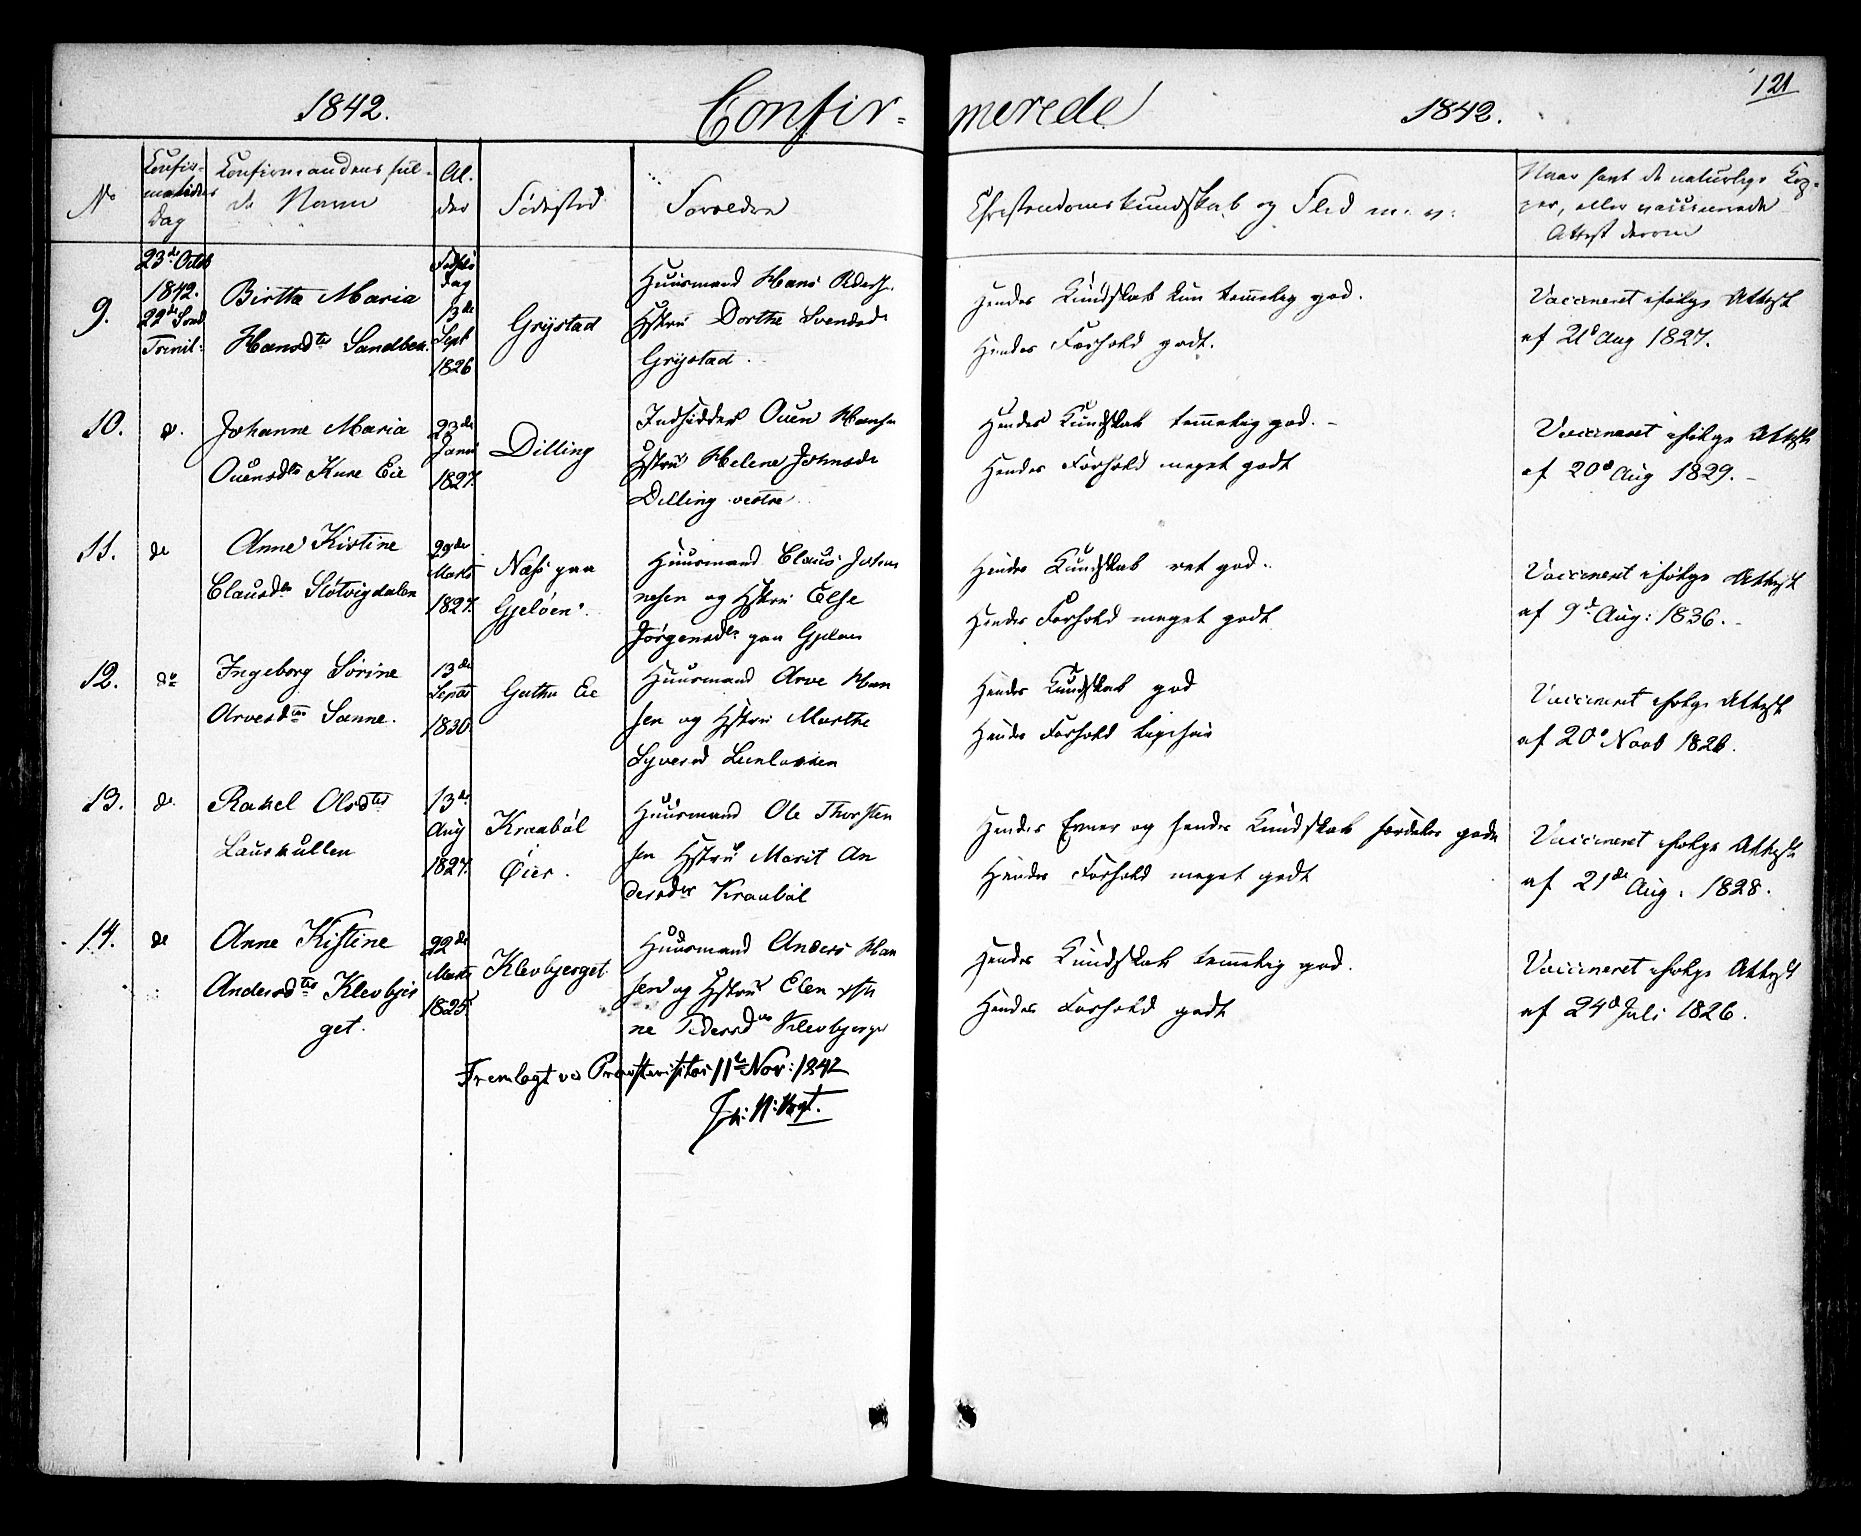 1842. Confir- merede 1842. 121
No
Confir-
mations
Dag
Confirmandens ful-
de Navn
Al-
der
Fødested
Forældre
Christendomskundskab og Flid m. v.
Naar havt de naturlige Kop-
per, eller vaccinerede
Attest derom
9.
23de Octob
1842.
22de Sønd
Trinit:
Birtta Maria
Hansdtr Sandbek
Fødsels
dag
13de
Sept
1826
Grystad
Huusmand Hans Peders.
Hstru Dorthe Svendsd
Grystad
Hendes Kundskab kun temmelig god.
Hendes Forhold godt.
Vaccineret ifølge Attest
af 21d Aug 1827.
10.
do.
Johanne Maria
Ouensdtr Kure Eie
23de
Janu
1827.
Dilling
Indsidder Ouen Hansen
Hstru Helene Johnsdr
Dilling vestre
Hendes Kundskab temmelig god. -
Hendes Forhold meget godt
Vaccineret ifølge Attest
af 20d Aug 1829. -
11.
do
Anne Kirstine
Clausdtr Slotvigdalen
29de
Marts
1827.
Næs paa
Gjeløen.
Huusmand Claus Johan
nesen og Hstru Else
Jørgensdtr paa Gjeløen
Hendes Kundskab ret god.
Hendes Forhold meget godt
Vaccineret ifølge Attest
af 9d Aug: 1836. -
12.
do
Ingeborg Sørine
Arvesdtr Sanne.
13de
Septbr
1830
Guthu Eie
Huusmand Arve Han
sen og Hstru Marthe
Syversd
Hendes Kundskab god
Hendes Forhold ligesaa
Vaccineret ifølge Attest
af 20d Novb 1826.
13.
do
Rakel Olsdtr
Lauskullen
13de
Aug
1827.
Kraabøl
Øier.
Huusmand Ole Thorsten
sen Hstru Marit An
dersdtr Kraabøl
Hendes Evner og hendes Kundskab særdeles gode
Hendes Forhold meget godt
Vaccineret ifølge Attest
af 21de Aug. 1828.
14.
do
Anne Kistine
Andersdtr Klevbjer
get.
22de
Marts
1825
Klevbjerget
Huusmand Anders Han
sen og Hstru Elen
ne Pedersdtr Klevbjerget
Hendes Kundskab temmelig god.
Hendes Forhold godt
Vaccineret ifølge Attest
af 24d Juli 1826.
Fremlagt ved Provstevisitas 11te Nov: 1842
N: Vogt.